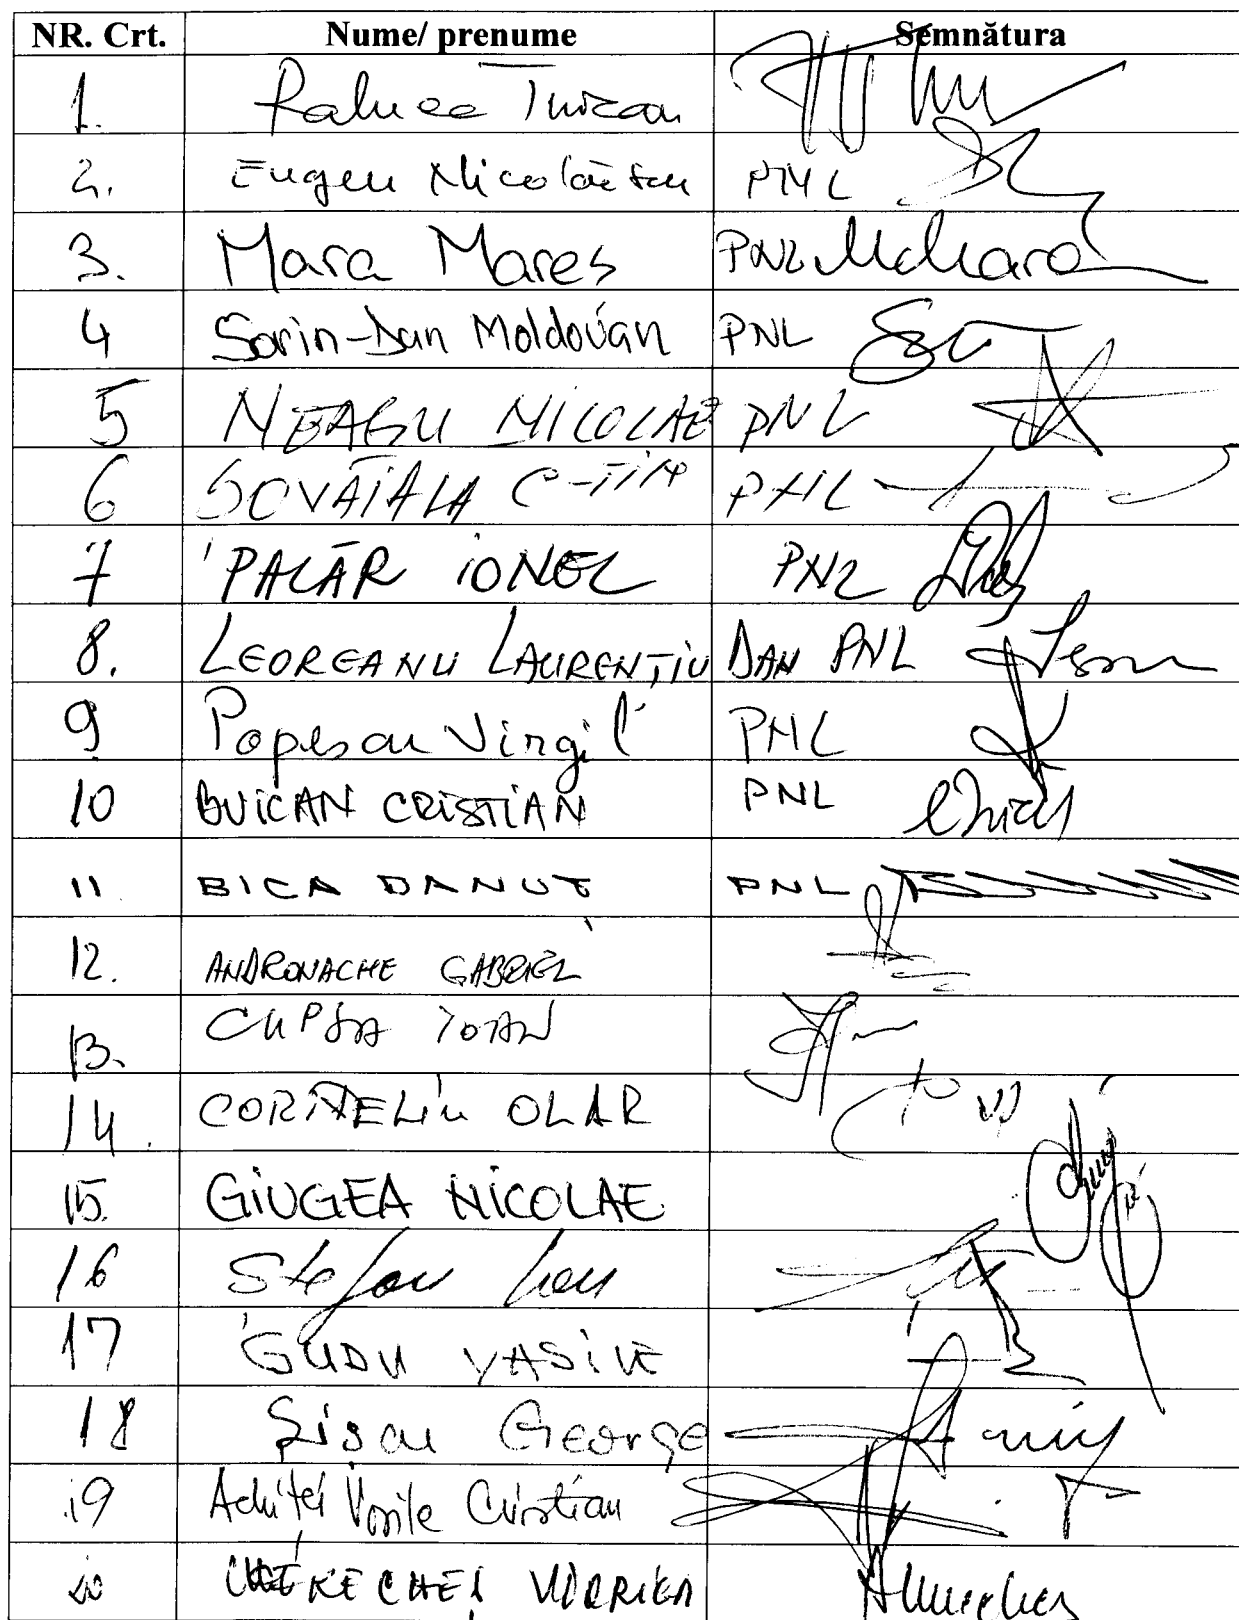 NR. Crt. Nume/ prenume Semnătura
1. Raluca Turcan
2. Eugen Nicolăescu PNL
3. Mara Mareș PNL
4 Sorin-Dan Moldovan PNL
5 NEAGU NICOLAE PNL
6 ȘOVĂIALĂ C-TIN PNL
7 PALĂR IONEL PNL
8. LEOREANU LAURENȚIU DAN PNL
9 Popescu Virgil PNL
10 BUICAN CRISTIAN PNL
11 BICA DANUT PNL
12. ANDRONACHE GABRIEL
13. CUPȘA IOAN
14. CORNELIU OLAR
15. GIUGEA NICOLAE
16 Stefan Ion
17 GUDU VASILE
18 Șișcu George
19 Achiței Vasile Cristian
20